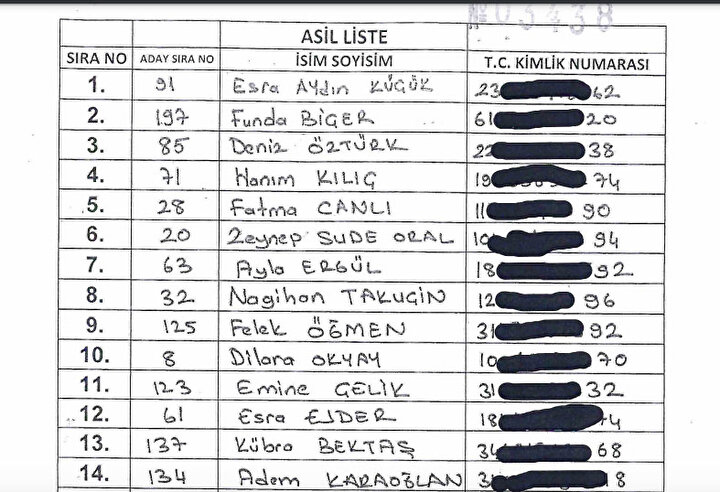 № 03438
ASİL LİSTE
SIRA NO ADAY SIRA NO İSİM SOYİSİM T.C. KİMLİK NUMARASI
1. 91 Esra AYDIN KÜÇÜK 23 62
2. 197 Funda BİÇER 61 20
3. 85 Deniz ÖZTÜRK 22 38
4. 71 Hanım KILIÇ 19 74
5. 28 Fatma CANLI 11 90
6. 20 Zeynep SUDE ORAL 10 94
7. 63 Ayla ERGÜL 18 92
8. 32 Nagihan TAKUGİN 12 96
9. 125 Felek ÖĞMEN 31 92
10. 8 Dilara OKYAY 10 70
11. 123 Emine ÇELİK 31 32
12. 61 Esra EJDER 18 74
13. 137 Kübra BEKTAŞ 34 68
14. 134 Adem KARAOĞLAN 3 8